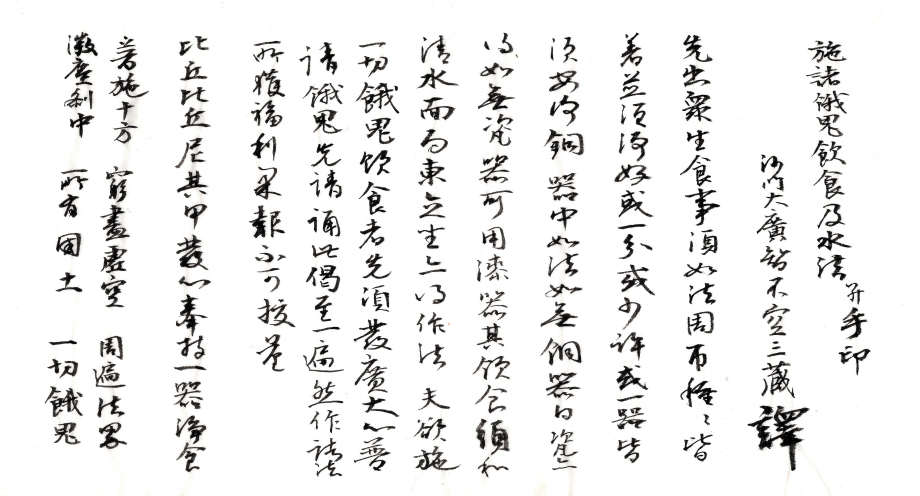 施諸餓鬼飲食及水法 并手印
沙門大廣智不空三藏譯
先出衆生食事須如法周帀種〻皆
著並須淨好或一分或少許或一器皆
須安淨銅器中如法如無銅器白瓷亦
得如無瓷器可用漆器其飲食須和
清水面向東立坐亦得作法 夫欲施
一切餓鬼飲食者先須發廣大心普
請餓鬼先請誦此偈至一遍然作諸法
所獲福利果報不可挍量
比丘比丘尼某甲發心奉持一器淨食
普施十方 窮盡虛空 周遍法界
微塵刹中 所有國土 一切餓鬼